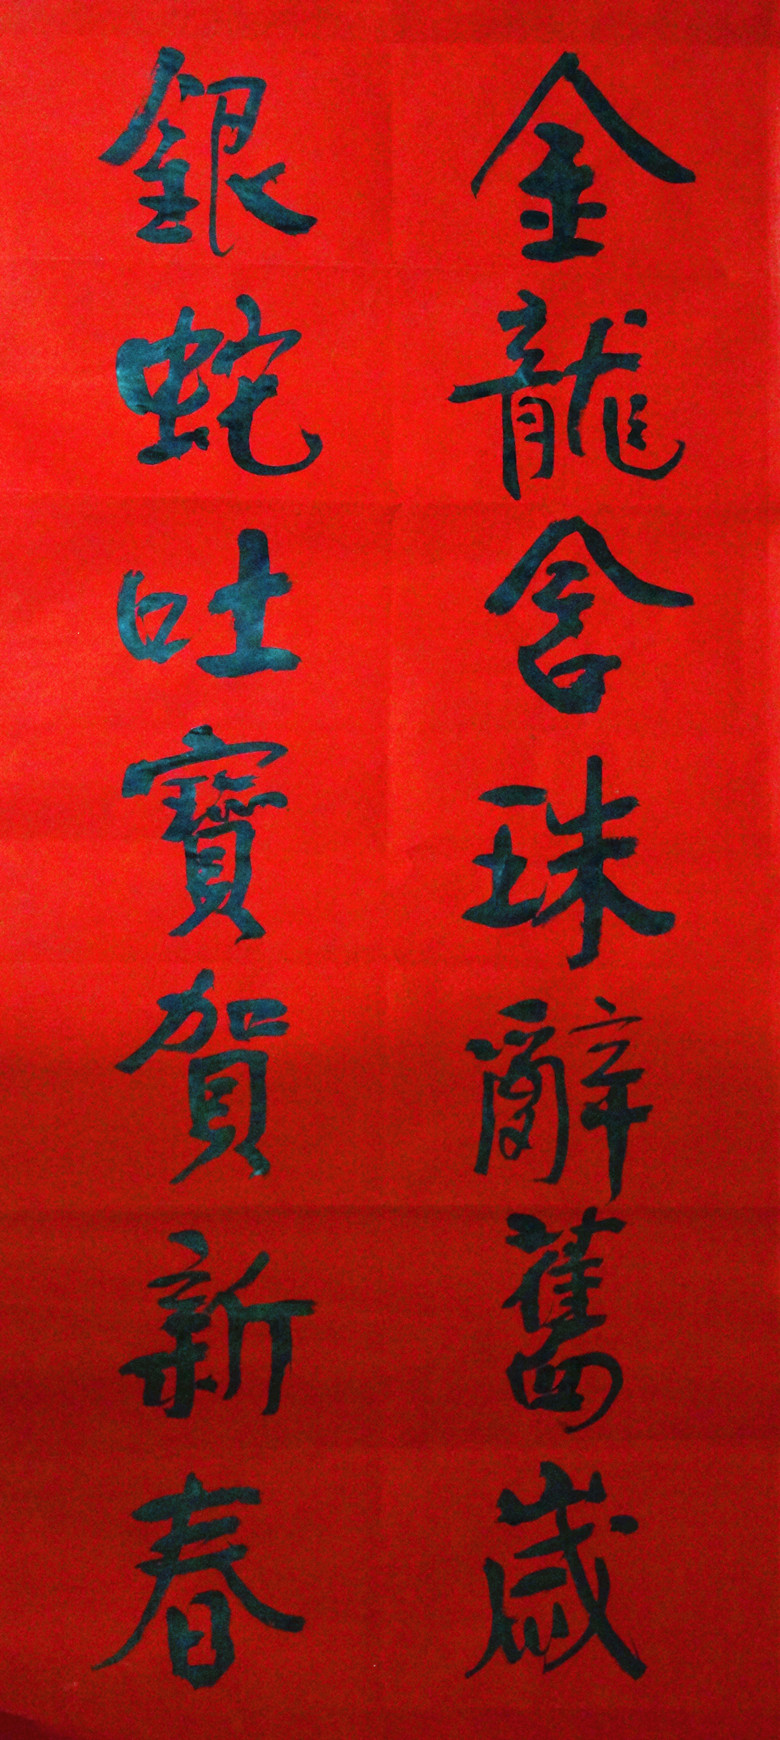 金龍含珠辭舊歲
銀蛇吐寶賀新春